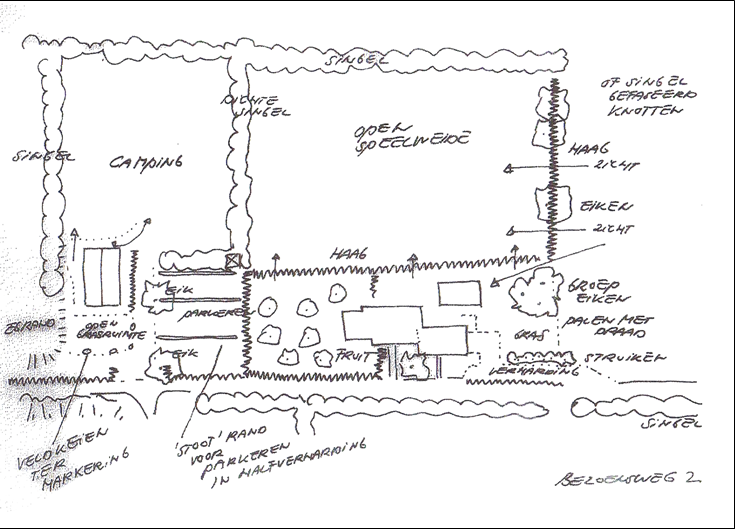 SINGEL
OF SINGEL
GEFASEERD
KNOTTEN
DICHTE
SINGEL
OPEN
SPEELWEIDE
HAAG
SINGEL
CAMPING
ZICHT
EIKEN
ZICHT
HAAG
EIK
GROEP
EIKEN
PARKEREN
PALEN MET
DRAAD
OPEN
GRASRUIMTE
GRAS
EIK
FRUIT
STRUIKEN
VERHARDING
SINGEL
VELDKEIEN
TER
MARKERING
'STOOT' RAND
VOOR
PARKEREN
IN HALFVERHARDING
BEZOENSWEG 2